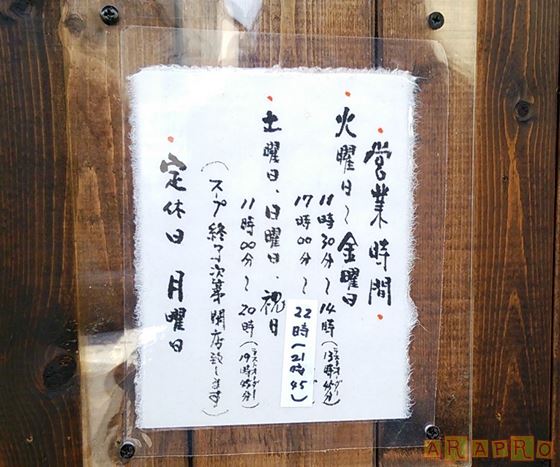 営業時間
火曜日〜金曜日
11時30分〜14時(ラストオーダー13時45分)
17時00分〜22時(21時45)
土曜日、日曜日、祝日
11時00分〜20時(ラストオーダー19時45分)
(スープ終了次第閉店致します)
定休日 月曜日
ARAPRO